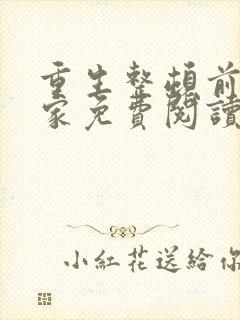 重生整頓前
家免費閱讀
小紅花送給你